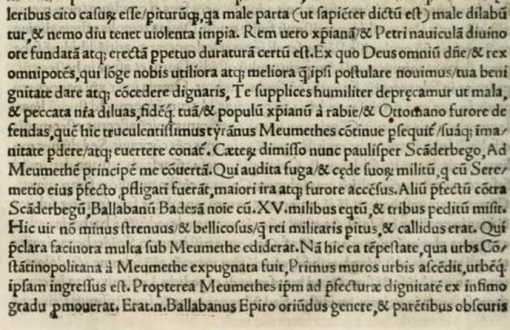 leribus cito casurę esse/pituruq̃,qa male parta (ut sapiẽter dictũ est) male dilabũ
tur,& nemo diu tenet uiolenta impia. Rem uero xp̃ianã/& Petri nauiculã diuino
ore fundatã atq; erectã ppetuo duraturã certũ est. Ex quo Deus omniũ dñe/& rex
omnipotẽs, qui lõge nobis utiliora atq; meliora q̃ ipsi postulare nouimus/tua beni
gnitate dare atq; cõcedere dignaris, Te supplices humiliter depręcamur ut mala,
& peccata nr̃a diluas, fidẽq̃ tuã/& populũ xp̃ianũ à rabie/& Ottomano furore de
fendas,quẽ hic truculentissimus tyrãnus Meumethes cõtinue psequit̃/suãq; ima/
nitate pdere/atq; euertere conat̃. Cæteȝ dimisso nunc paulisper Scãderbego, Ad
Meumethẽ principẽ me cõuertã. Qui audita fuga/& cęde suoȝ militũ,q cũ Sere/
metio eius p̃fecto pfligati fuerãt,maiori ira atq; furore accẽsus. Aliũ p̃fectũ cõtra
Scãderbegũ, Ballabanũ Baderã noĩe cũ.XV.milibus eq̃tũ,& tribus peditũ misit.
Hic uir nõ minus strenuus/& bellicosus/q̃ rei militaris pitus,& callidus erat. Qui
p̃clara facinora multa sub Meumethe ediderat. Nã hic ea tẽpestate, qua urbs Cõ/
stãtinopolitana à Meumethe expugnata fuit,Primus muros urbis ascẽdit,urbẽq̃
ipsam ingressus est. Propterea Meumethes ip̃m ad p̃fecturæ dignitatẽ ex infimo
gradu pmouerat. Erat.n.Ballabanus Epiro oriũdus genere,& parẽtibus obscuris